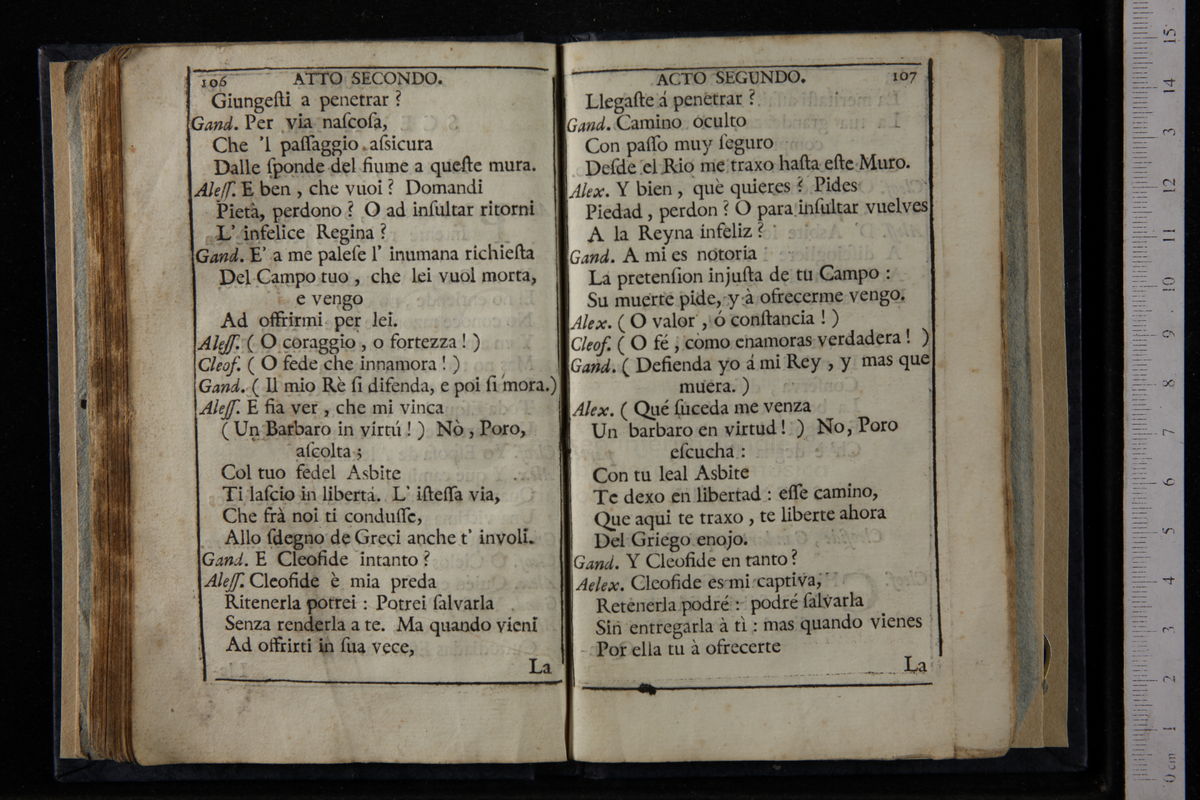 106 ATTO SECONDO.
Giungeſti a penetrar ?
Gand. Per via naſcoſa,
Che 'l paſſaggio aſsicura
Dalle ſponde del fiume a queſte mura.
Aleſſ. E ben , che vuoi ? Domandi
Pietà, perdono ? O ad inſultar ritorni
L' infelice Regina ?
Gand. E' a me paleſe l' inumana richieſta
Del Campo tuo , che lei vuol morta,
e vengo
Ad offrirmi per lei.
Aleſſ. ( O coraggio , o fortezza ! )
Cleof. ( O fede che innamora ! )
Gand. ( Il mio Rè ſi difenda, e poi ſi mora.)
Aleſſ. E fia ver , che mi vinca
( Un Barbaro in virtú ! ) Nò , Poro,
aſcolta ;
Col tuo fedel Asbite
Ti laſcio in libertá. L' iſteſſa via,
Che frà noi ti conduſſe,
Allo ſdegno de Greci anche t' involi.
Gand. E Cleofide intanto ?
Aleſſ. Cleofide è mia preda
Ritenerla potrei : Potrei ſalvarla
Senza renderla a te. Ma quando vieni
Ad offrirti in ſua vece,
La
ACTO SEGUNDO. 107
Llegaſte á penetrar ?
Gand. Camino oculto
Con paſſo muy ſeguro
Deſde el Rio me traxo haſta eſte Muro.
Alex. Y bien , què quieres ? Pides
Piedad , perdon ? O para inſultar vuelves
A la Reyna infeliz ?
Gand. A mi es notoria
La pretenſion injuſta de tu Campo :
Su muerte pide, y à ofrecerme vengo.
Alex. ( O valor , ó conſtancia ! )
Cleof. ( O fé , como enamoras verdadera ! )
Gand. ( Defienda yo á mi Rey , y mas que
muera. )
Alex. ( Qué ſuceda me venza
Un barbaro en virtud ! ) No, Poro
eſcucha :
Con tu leal Asbite
Te dexo en libertad : eſſe camino,
Que aqui te traxo , te liberte ahora
Del Griego enojo.
Gand. Y Cleofide en tanto ?
Aelex. Cleofide es mi captiva,
Retenerla podré : podré ſalvarla
Sin entregarla à tì : mas quando vienes
Por ella tu à ofrecerte
La